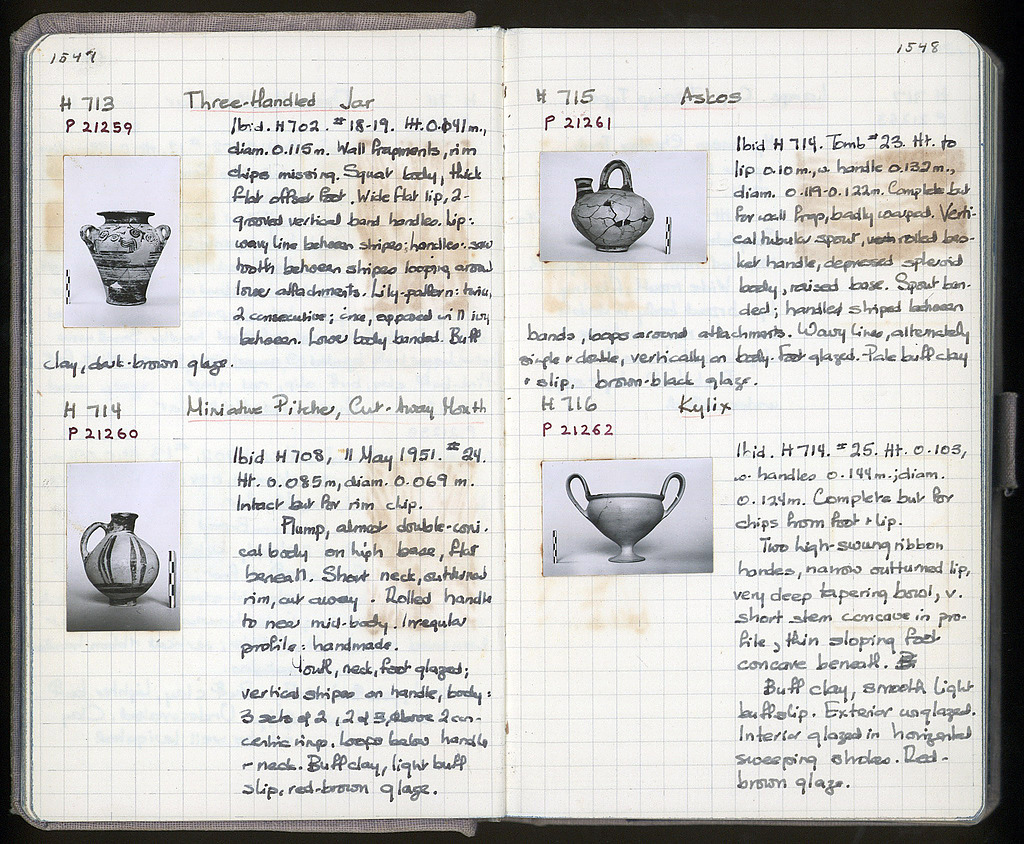 1547
H 713 Three-Handled Jar
P 21259
Ibid. H 702. #18-19. Ht. 0.141 m.,
diam. 0.115 m. Wall fragments, rim
chips missing. Squat body, thick
flat offset foot. Wide flat lip, 2-
grooved vertical band handles. Lip:
wavy line between stripes; handles: saw
tooth between stripes looping around
lower attachments. Lily-pattern: twice,
2 consecutive; once, opposed w. ivy
between. Lower body banded. Buff
clay, dark-brown glaze.
H 714 Miniature Pitcher, Cut-Away Mouth
P 21260
Ibid H 708, 11 May 1951. #24.
Ht. 0.085 m, diam. 0.069 m.
Intact but for rim chip.
Plump, almost double-coni-
cal body on high base, flat
beneath. Short neck, outturned
rim, cut away. Rolled handle
to near mid-body. Irregular
profile: handmade.
Mouth, neck, foot glazed;
vertical stripes on handle, body:
3 sets of 2, 2 of 3, above 2 con-
centric rings. Loops below handle
- neck. Buff clay, light buff
slip, red-brown glaze.
1548
H 715 Askos
P 21261
Ibid H 714. Tomb #23. Ht. to
lip 0.10 m., w. handle 0.132 m.,
diam. 0.119-0.122 m. Complete but
for wall frag, badly warped. Verti-
cal tubular spout, rolled bas-
ket handle, depressed spheroid
body, raised base. Spout ban-
ded; handles striped between
bands, loops around attachments. Wavy lines, alternately
single + double, vertically on body. Foot glazed. Pale buff clay
+ slip, brown-black glaze.
H 716 Kylix
P 21262
Ibid. H 714. #25. Ht. 0.103,
w. handles 0.144 m.; diam.
0.124 m. Complete but for
chips from foot + lip.
Two high-swung ribbon
handes, narrow outturned lip,
very deep tapering bowl, v.
short stem concave in pro-
file, thin sloping foot
concave beneath.
Buff clay, smooth light
buff slip. Exterior unglazed.
Interior glazed in horizontal
sweeping strokes. Red-
brown glaze.